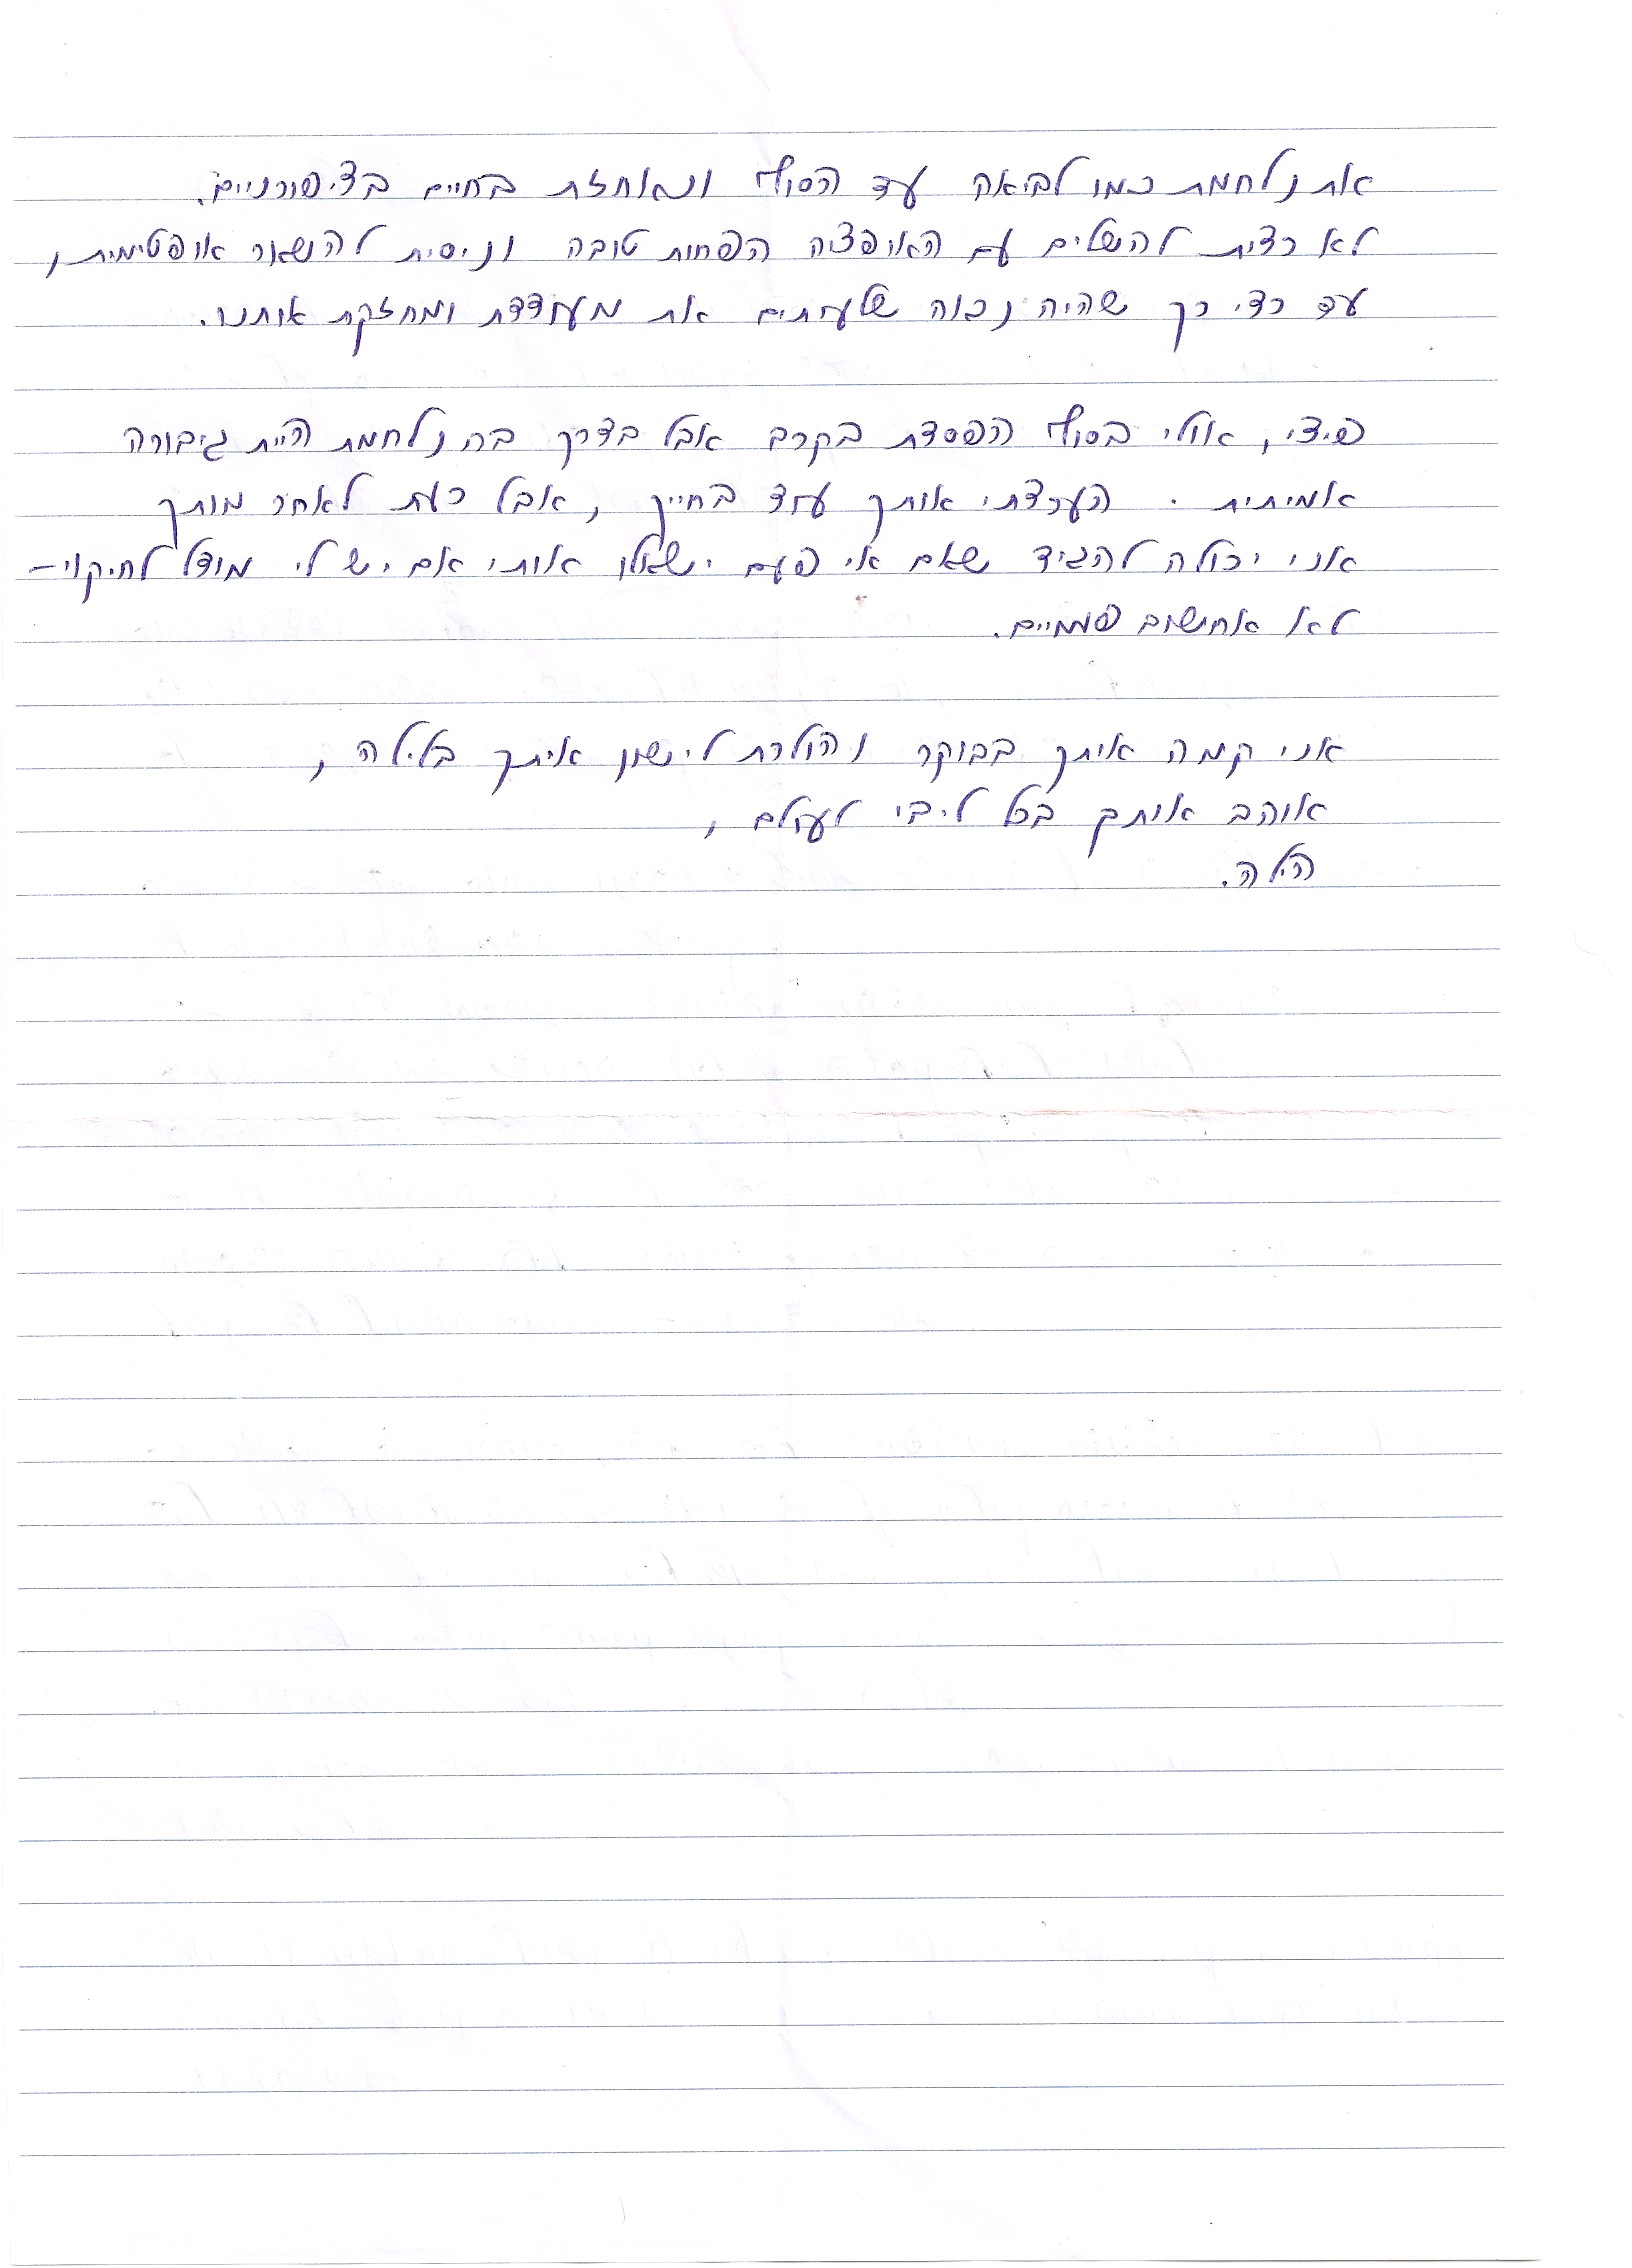 את נלחמת כמו לביאה עד הסוף ונאחזת בחיים בציפורניים.
לא רצית להשלים עם האופציה הפחות טובה וניסית להשאר אופטימית,
עד כדי כך שהיה נראה שלעתים את מעודדת ומחזקת אותנו.
פיצי, אולי בסוף הפסדת בקרב אבל בדרך בה נלחמת היית גיבורה
אמיתית. הערצתי אותך עוד בחייך, אבל כעת לאחר מותך
אני יכולה להגיד שאם אי פעם ישאלו אותי אם יש לי מודל לחיקוי-
לא אחשוב פעמיים.
אני קמה איתך בבוקר והולכת לישון איתך בלילה,
אוהב אותך בכל ליבי לעולם,
הילה.